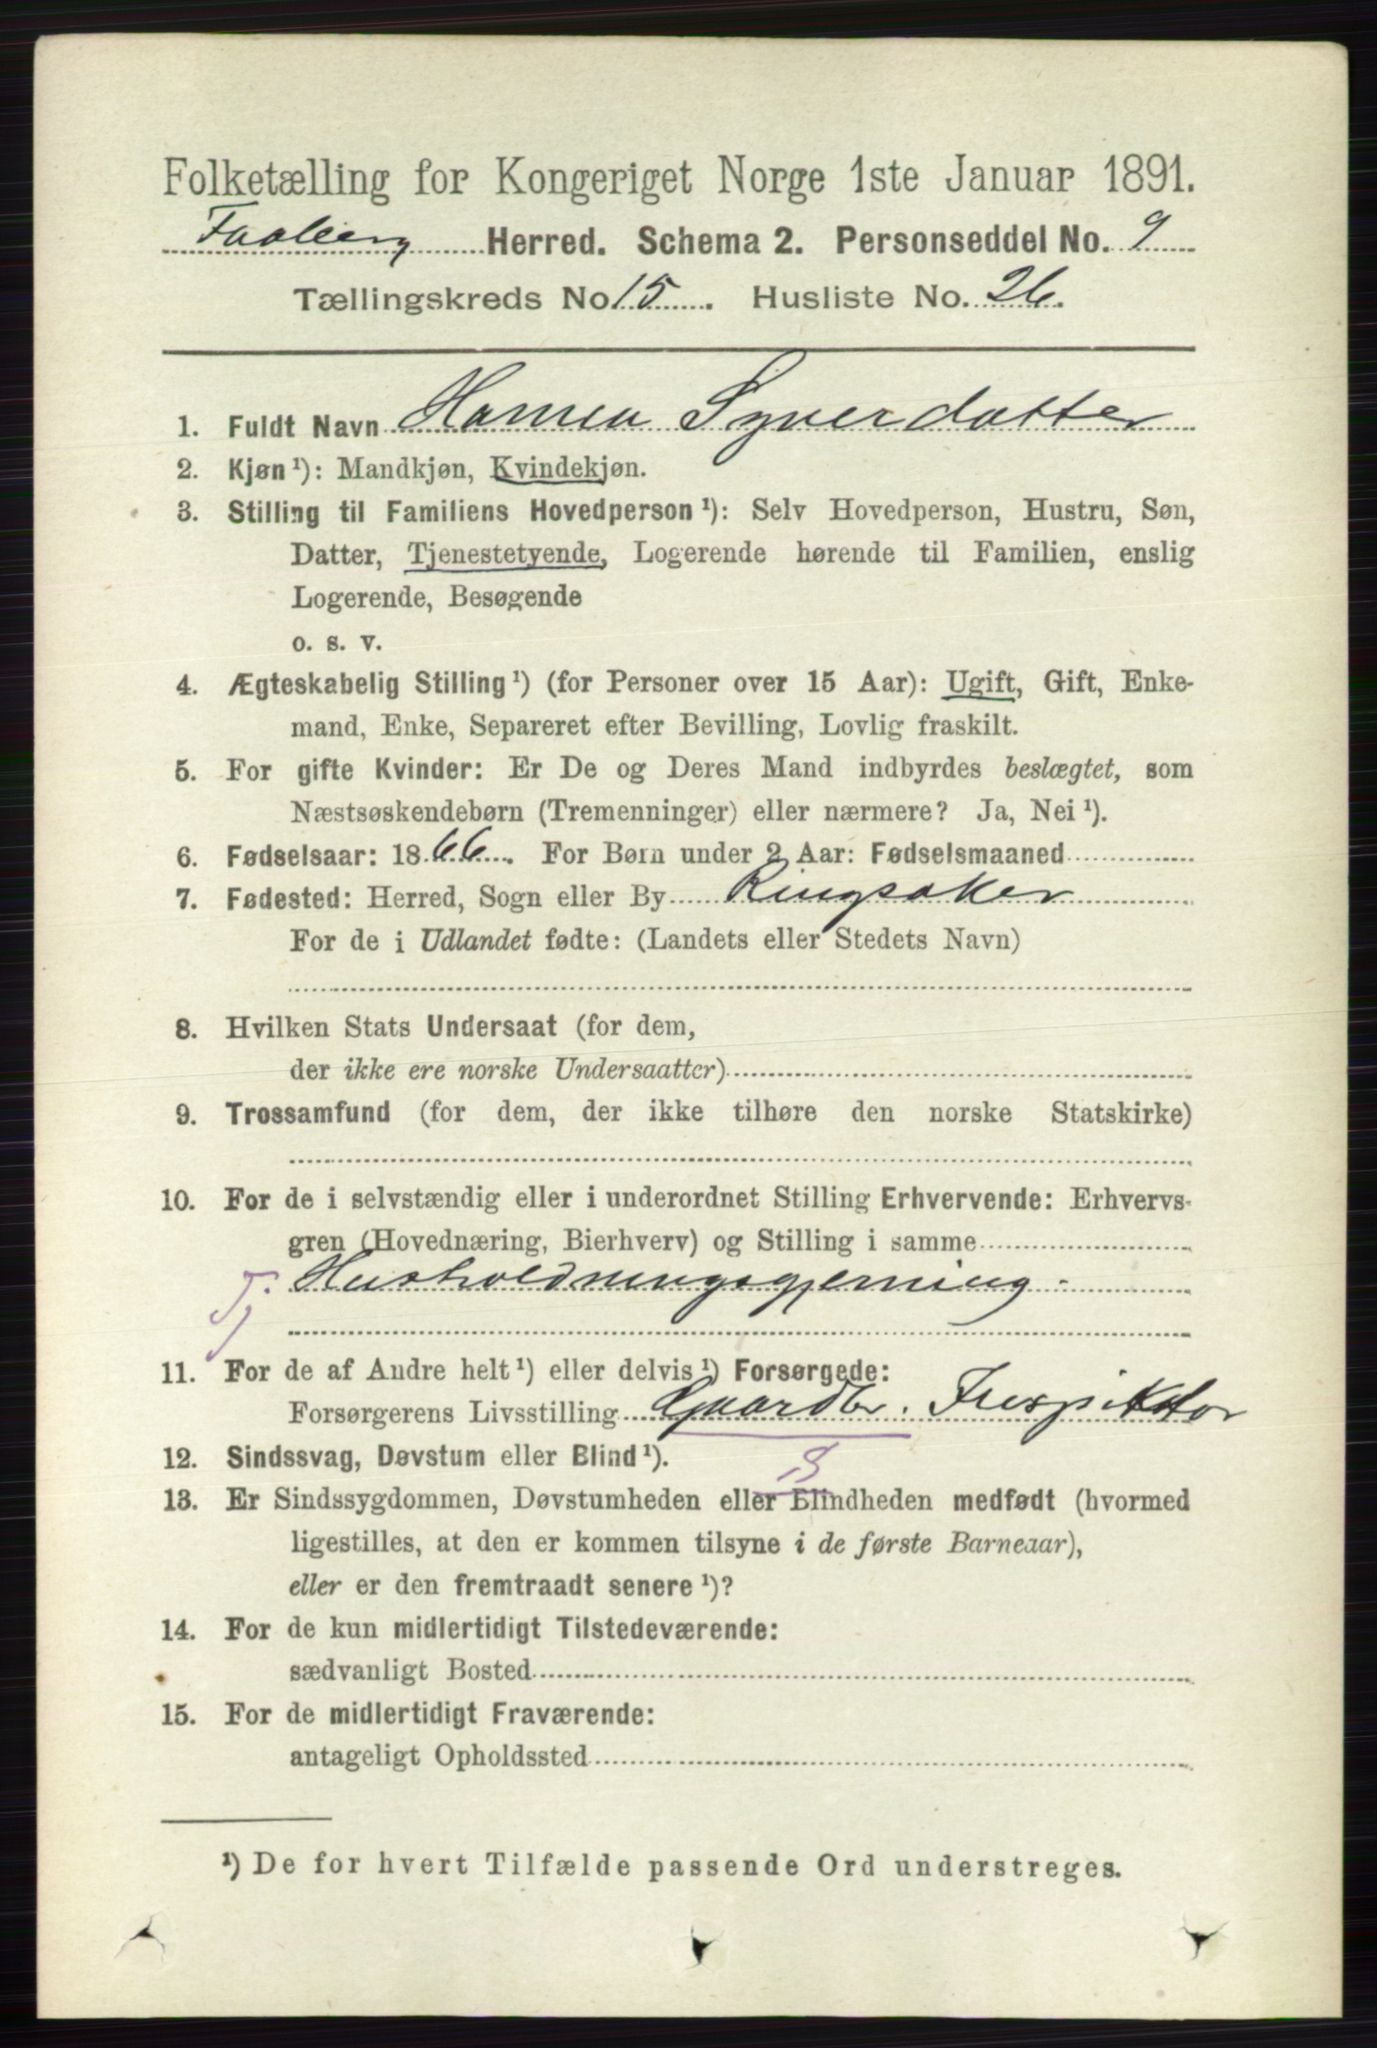 Folketælling for Kongeriget Norge 1ste Januar 1891.
Faaberg Herred. Schema 2. Personseddel No. 9
Tællingskreds No 15. Husliste No. 26.
1. Fuldt Navn Syverdatter
2. Kjøn ¹): Mandkjøn, Kvindekjøn.
3. Stilling til Familiens Hovedperson ¹): Selv Hovedperson, Hustru, Søn,
Datter, Tjenestetyende, Logerende hørende til Familien, enslig
Logerende, Besøgende
o. s. v.
4. Ægteskabelig Stilling ¹) (for Personer over 15 Aar): Ugift, Gift, Enke-
mand, Enke, Separeret efter Bevilling, Lovlig fraskilt.
5. For gifte Kvinder: Er De og Deres Mand indbyrdes beslægtet, som
Næstsøskendebørn (Tremenninger) eller nærmere? Ja, Nei ¹).
6. Fødselsaar: 1866. For Børn under 2 Aar: Fødselsmaaned
7. Fødested: Herred, Sogn eller By Ringsaker
For de i Udlandet fødte: (Landets eller Stedets Navn)
8. Hvilken Stats Undersaat (for dem,
der ikke ere norske Undersaatter)
9. Trossamfund (for dem, der ikke tilhøre den norske Statskirke)
10. For de i selvstændig eller i underordnet Stilling Erhvervende: Erhvervs-
gren (Hovednæring, Bierhverv) og Stilling i samme
Tj. Husholdningsgjerning.
11. For de af Andre helt ¹) eller delvis ¹) Forsørgede:
Forsørgerens Livsstilling Gaardbr. Inspektor
12. Sindssvag, Døvstum eller Blind ¹).
13. Er Sindssygdommen, Døvstumheden eller Blindheden medfødt (hvormed
ligestilles, at den er kommen tilsyne i de første Barneaar),
eller er den fremtraadt senere ¹)?
14. For de kun midlertidigt Tilstedeværende:
sædvanligt Bosted
15. For de midlertidigt Fraværende:
antageligt Opholdssted
¹) De for hvert Tilfælde passende Ord understreges.